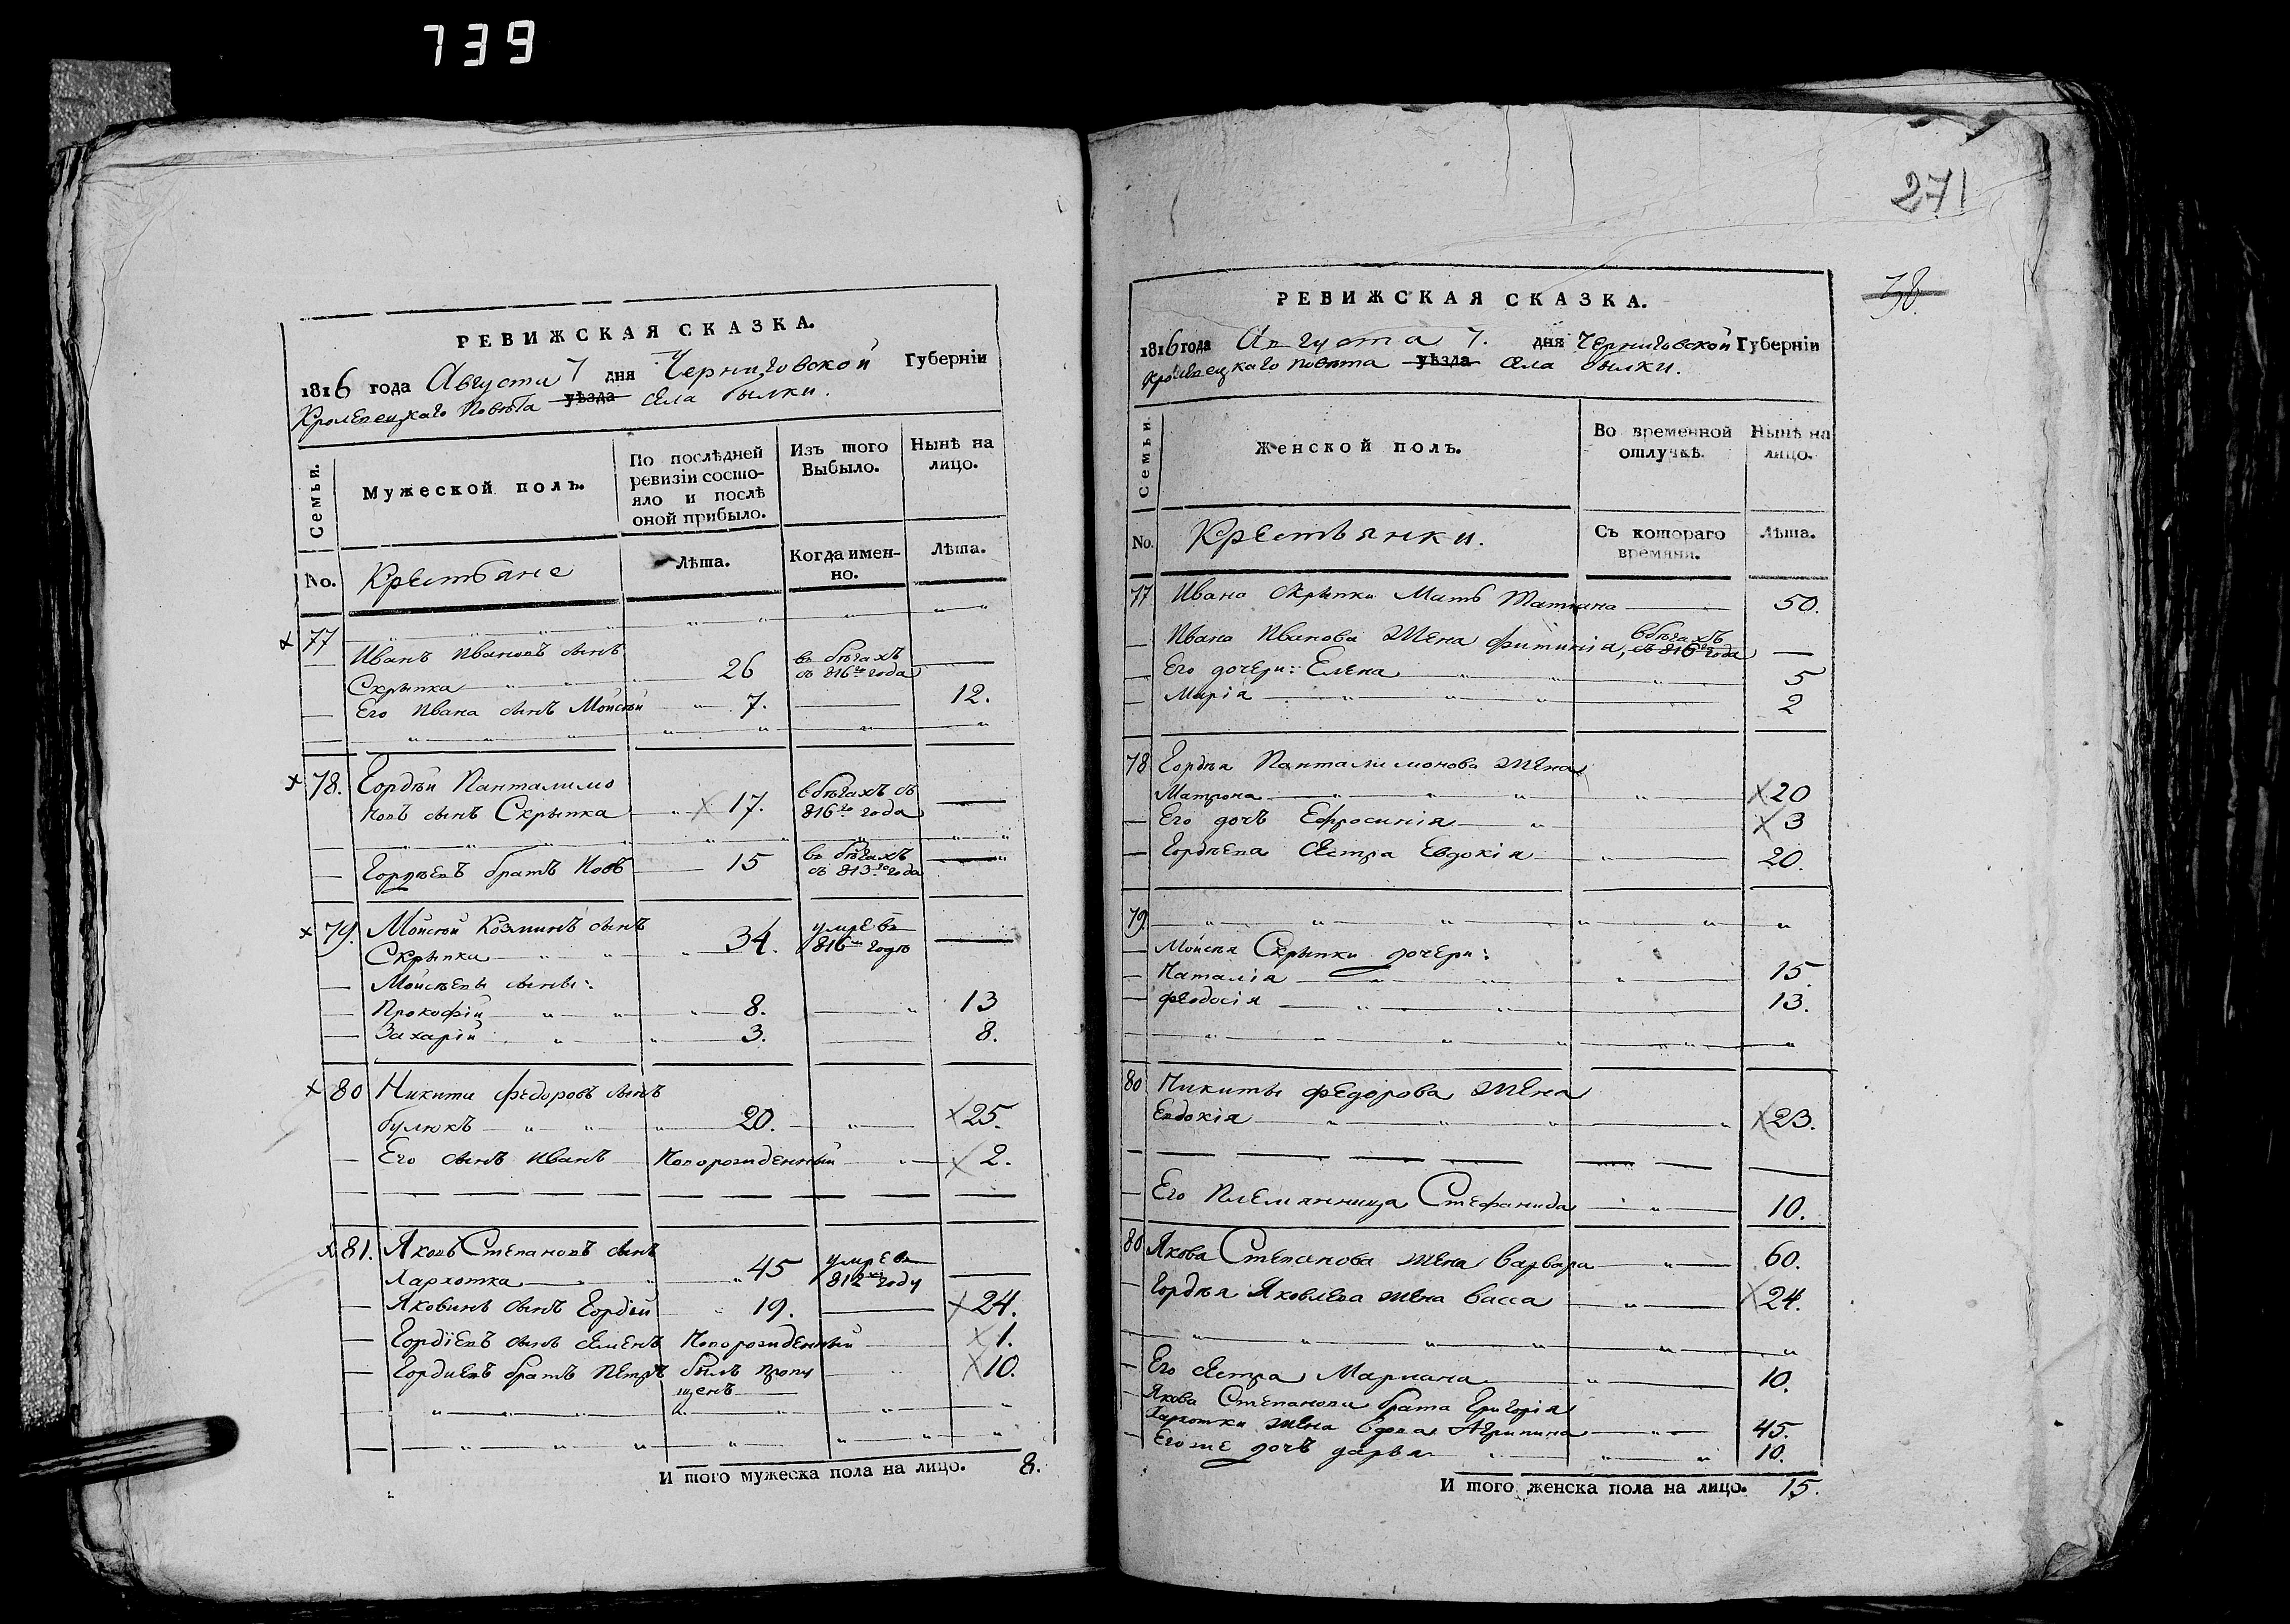 739
РЕВИЖСКАЯ СКАЗКА.
1816 года Августа 7 дня Черниговской Губерніи
Кролевецкаго Повѣта уѣзда села былки.
Семьи.
Мужеской полъ.
По послѣдней ревизіи состояло и послѣ оной прибыло.
Изъ того Выбыло.
Нынѣ на лицо.
No. Крестьяне Лѣта. Когда именно. Лѣта.
77
Иванъ Ивановъ сынъ
Скрыпка 26 въ бѣгахъ съ 816го года
Его Ивана сынъ Мойсей 7. 12.
78. Гордѣй Панталимо
новъ сынъ Скрыпка 17. въ бѣгахъ съ 816го года
Гордѣевъ братъ Іовъ 15 въ бѣгахъ съ 813го года
79. Мойсей Козминъ сынъ
Скрыпка 34. умре въ 816м годѣ
Мойсѣевы сыны:
Прокофій 8. 13
Захарій 3. 8.
80 Никита Федоровъ сынъ
булюкъ 20. 25.
Его сынъ Иванъ Новорожденный 2.
81. Яковъ Степановъ сынъ
Хархотка 45 умре въ 812м году
Яковинъ сынъ Гордѣй 19. 24.
Гордіевъ сынъ Семенъ Новорожденный 1.
Гордиевъ братъ Петръ былъ пропу 10.
щенъ
И того мужеска пола на лицо. 8.
271
38.
РЕВИЖСКАЯ СКАЗКА.
1816 года Августа 7. дня Черниговской Губерніи
Кролевецкаго повѣта уѣзда села былки.
Семьи.
Женской полъ.
Во временной отлучкѣ.
Нынѣ на лицо.
No. Крестьянки. Съ котораго времяни. Лѣта.
77 Ивана Скрыпки Мать Татиана 50.
Ивана Иванова Жена Фитинія, въ бѣгахъ съ 816го года
Его дочери: Елена 5
Марія 2
78 Гордѣя Панталимонова жена
Матрона 20
Его дочь Ефросинія 3
Гордѣева Сестра Евдокія 20.
79.
Мойсея Скрыпки дочери:
Наталія 15
Феодосія 13.
80 Никиты Федорова жена
Евдокія 23.
Его Племянница Стефанида 10.
80 Якова Степанова жена Варвара 60.
Гордѣя Яковлева жена Васса 24.
Его Сестра Мариана 10.
Якова Степанова брата Григорія
Хархотки жена вдова Агрипина 45.
Его же дочь дарья 10.
И того женска пола на лицо. 15.